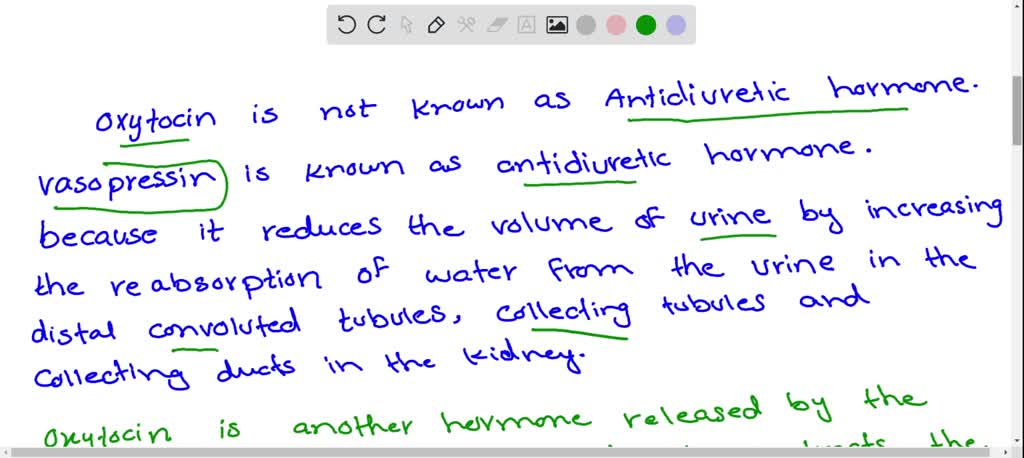 Oxytocin is not known as Antidiuretic hormone.
vasopressin is known as antidiuretic hormone.
because it reduces the volume of urine by increasing
the reabsorption of water from the urine in the
distal convoluted tubules, collecting tubules and
collecting ducts in the kidney.
Oxytocin is another hormone released by the
the